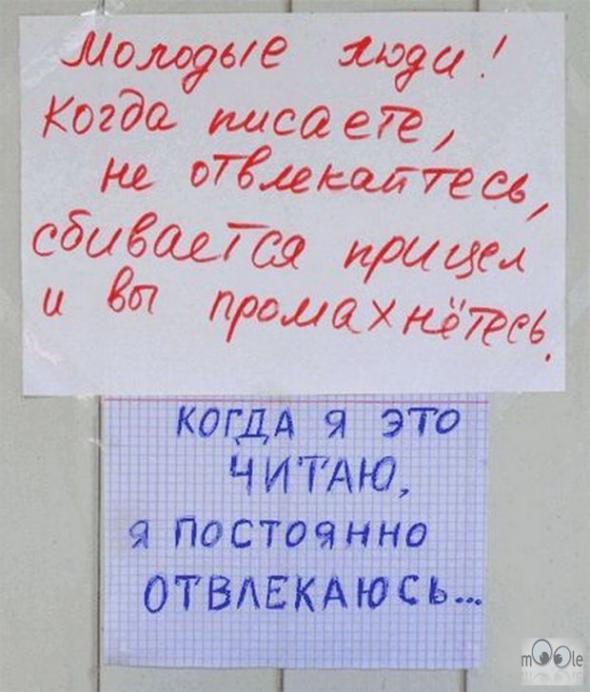 Молодые люди!
Когда писаете,
не отвлекайтесь,
сбивается прицел
и вы промахнётесь.
КОГДА Я ЭТО
ЧИТАЮ,
Я ПОСТОЯННО
ОТВЛЕКАЮСЬ...
moole